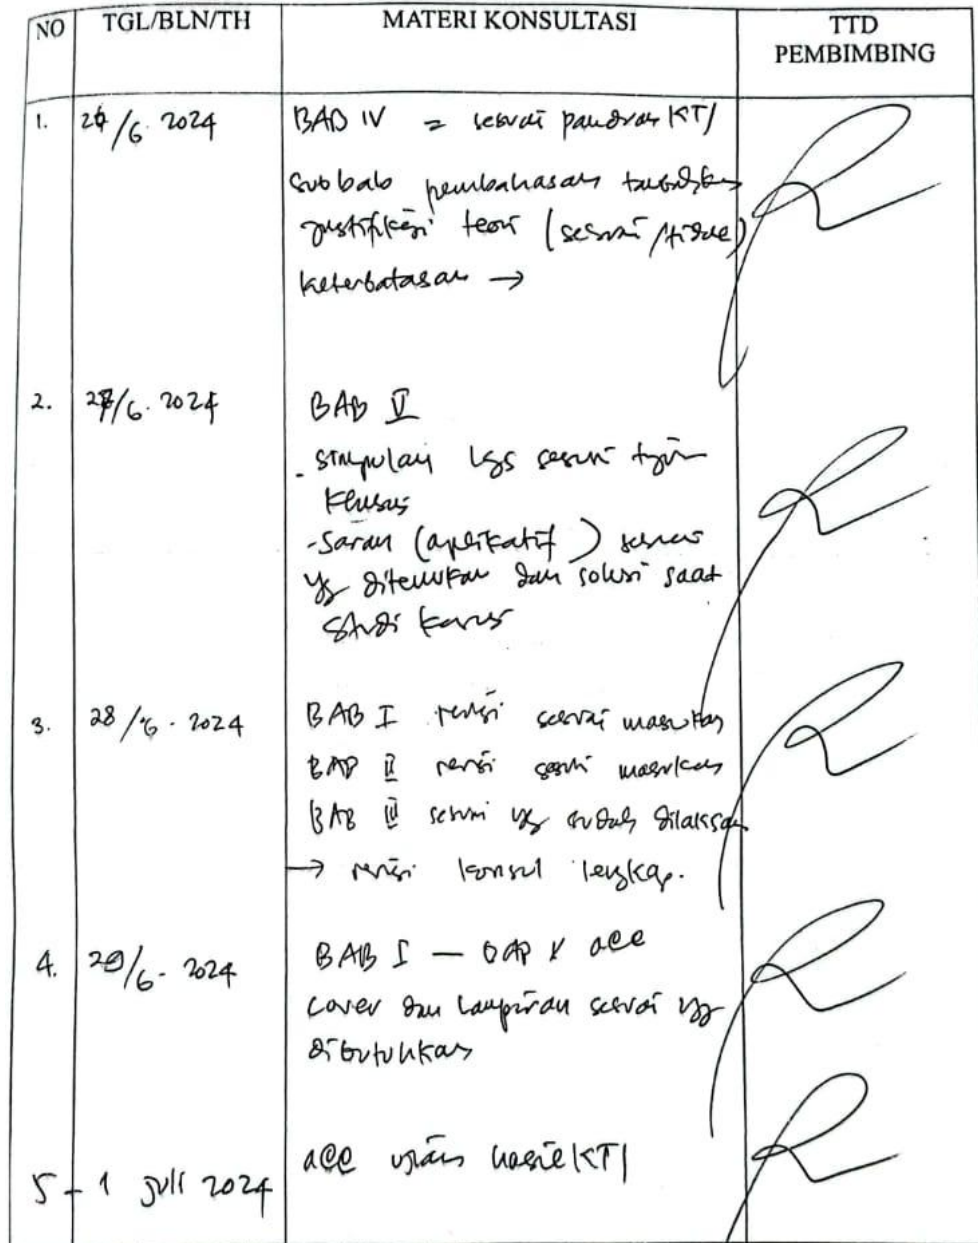 NO TGL/BLN/TH MATERI KONSULTASI TTD
PEMBIMBING
1. 26/6. 2024 BAB IV = sesuai panduan KTI
subbab pembahasan tambahkan
justifikasi teori (sesuai/tidak)
keterbatasan →
2. 27/6. 2024 BAB V
- simpulan lgs sesuai tujuan
khusus
- saran (aplikatif) sesuai
yg ditemukan dan solusi saat
studi kasus
3. 28/6 - 2024 BAB I revisi sesuai masukan
BAB II revisi sesuai masukan
BAB III sesuai yg sudah dilaksan
→ revisi konsul lengkap.
4. 29/6 - 2024 BAB I — BAB V acc
cover dan lampiran sesuai yg
dibutuhkan
5 - 1 Juli 2024 acc ujian hasil KTI